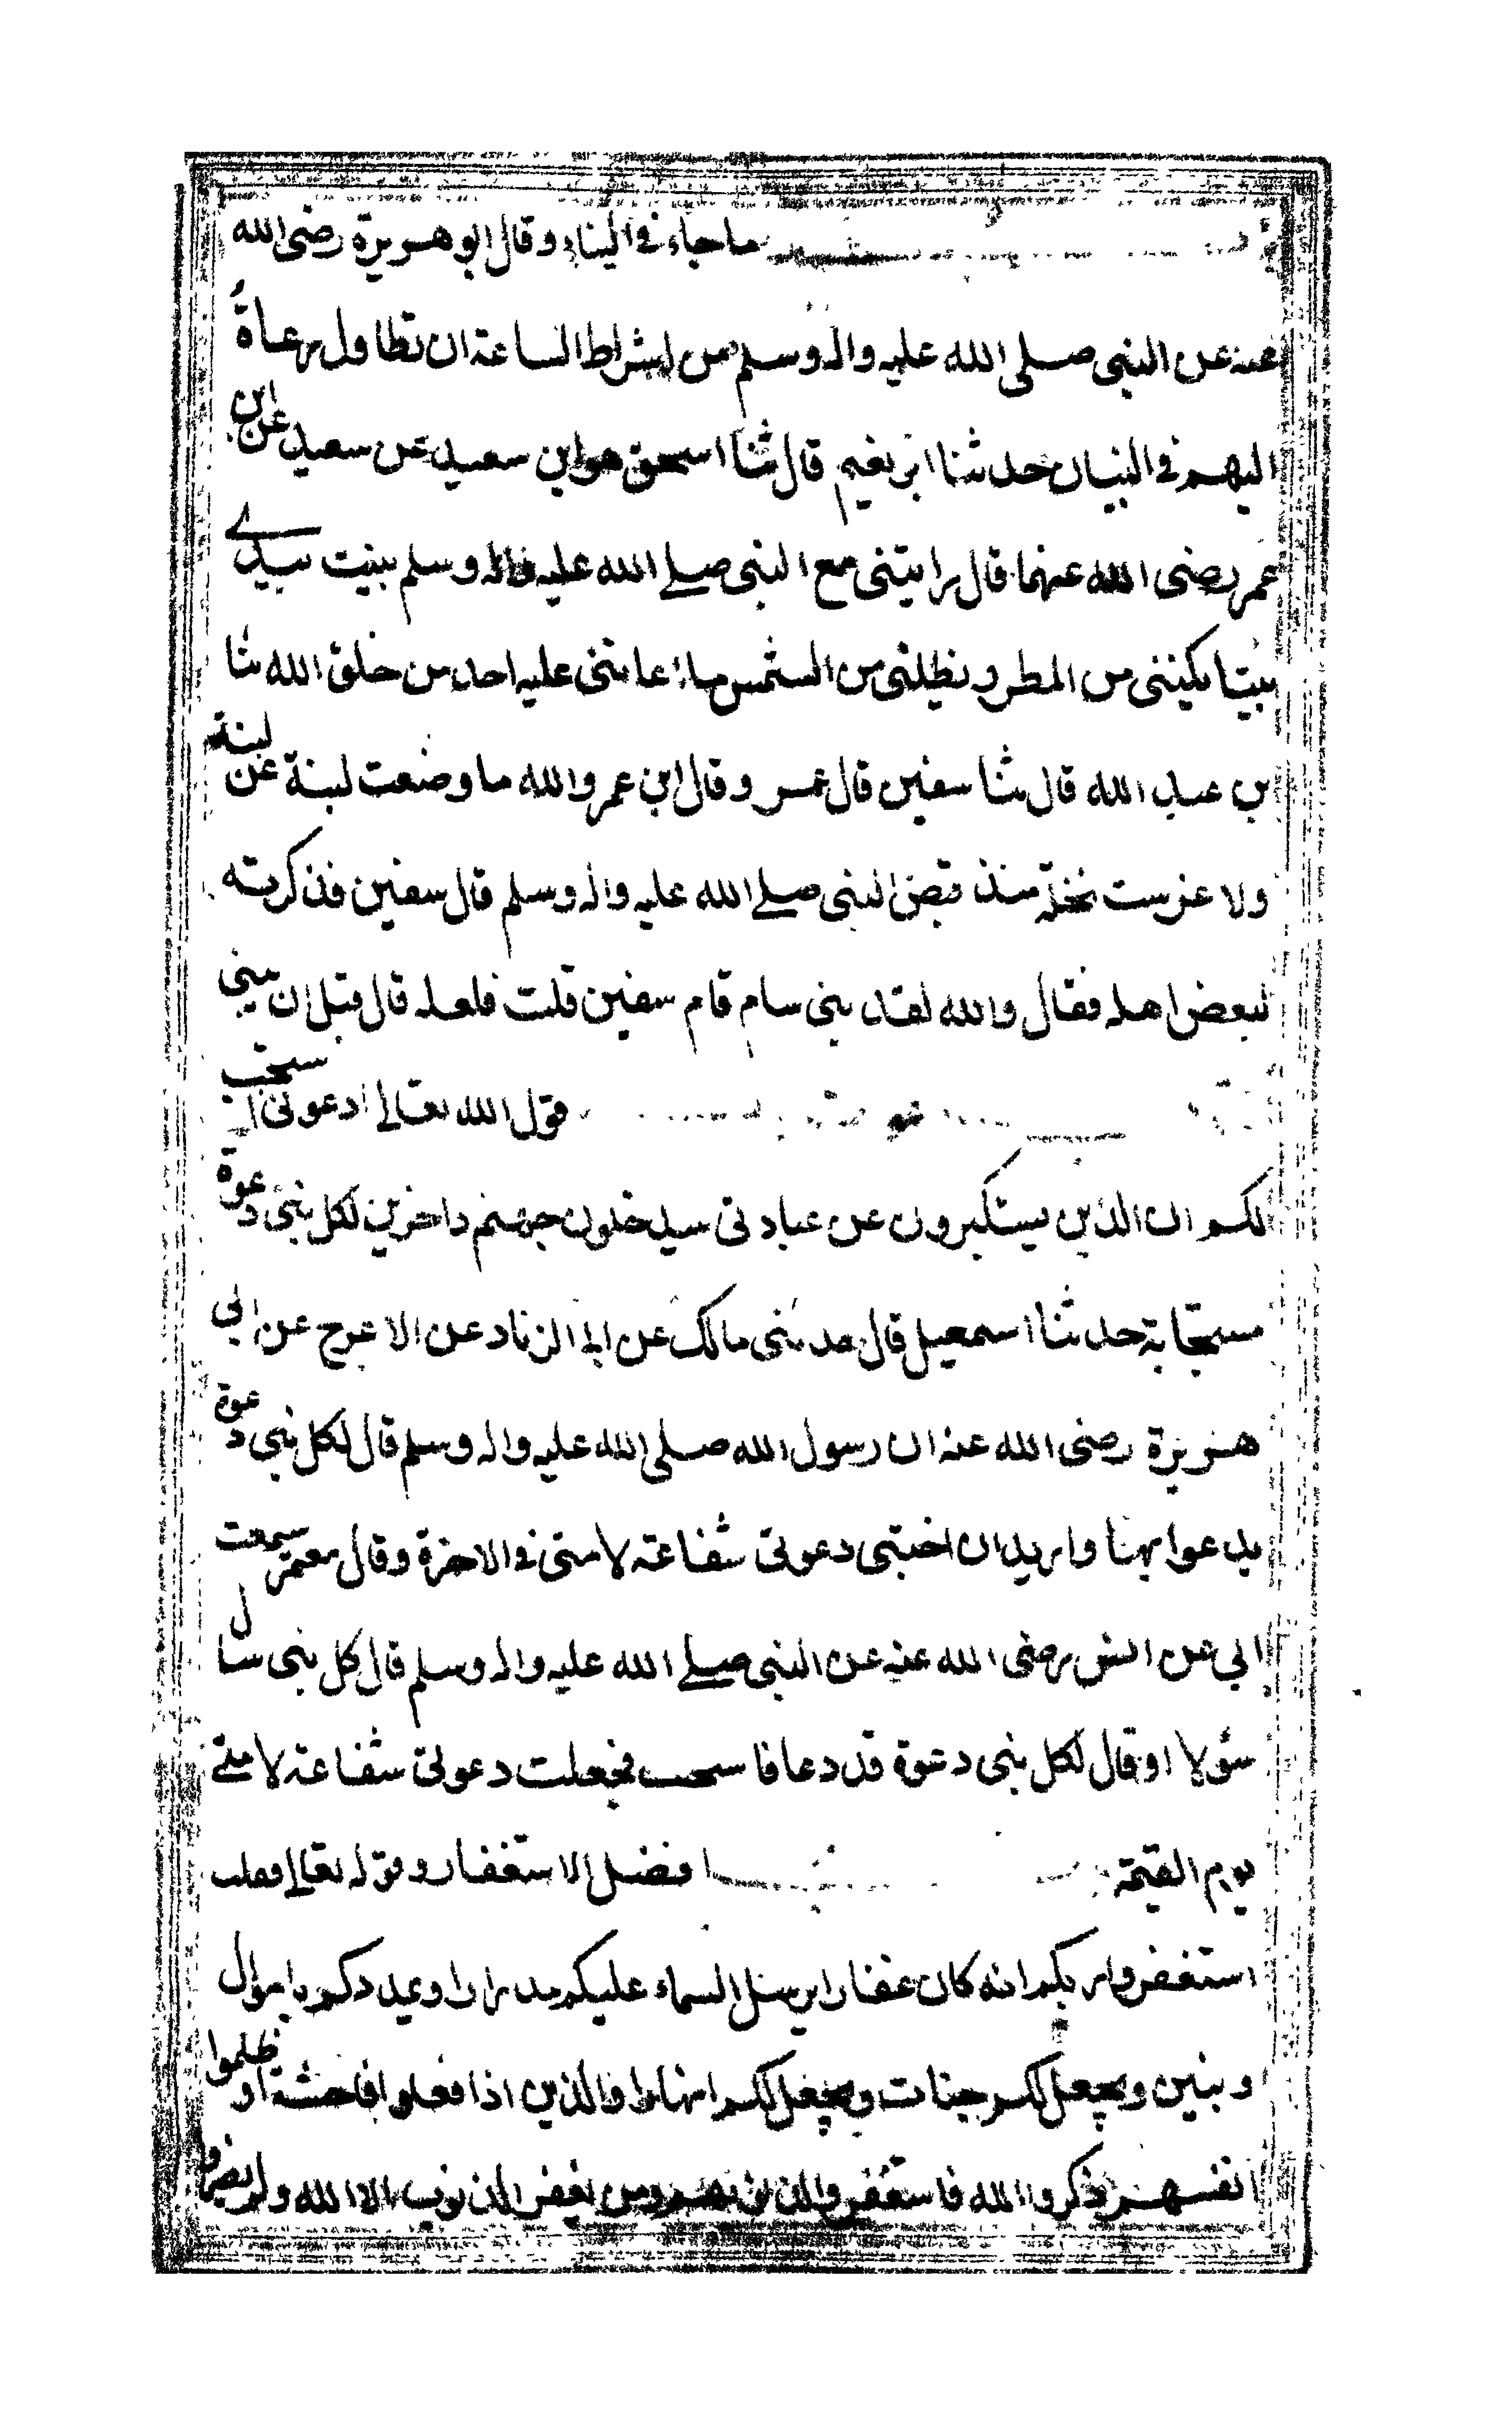 ما جاء في البناء وقال ابو هريرة رضى الله
عنه عن النبى صلى الله عليه واله وسلم من اشراط الساعة ان تطاول رعاة
البهم في البنيان حدثنا ابو نعيم قال ثنا اسحق هو ابن سعيد عن سعيد عن ابن
عمر رضى الله عنهما قال رايتنى مع النبى صلى الله عليه واله وسلم بنيت بيدي
بيتا يكننى من المطر و يظلنى من الشمس ما اعاننى عليه احد من خلق الله ثنا
بن عبد الله قال ثنا سفين قال عمر و قال ابن عمر والله ما وضعت لبنة عن لبنة
ولا غرست نخلة منذ قبض النبى صلى الله عليه واله وسلم قال سفين فذكرته
لبعض اهله فقال والله لقد بنى سام قام سفين قلت فلعله قال قبل ان يبنى
قول الله تعالى ادعونى استجب
لكم ان الذين يستكبرون عن عبادتى سيدخلون جهنم داخرين لكل نبى دعوة
مستجابة حدثنا اسمعيل قال حدثنى مالك عن ابى الزناد عن الاعرج عن ابي
هريرة رضى الله عنه ان رسول الله صلى الله عليه واله وسلم قال لكل نبى دعوة
يدعوا بها واريد ان اختبى دعوتى شفاعة لامتى في الاخرة وقال معمر سمعت
ابي عن انس رضى الله عنه عن النبى صلى الله عليه واله وسلم قال كل نبى سال
سؤلا او قال لكل نبى دعوة قد دعا فاستجب فجعلت دعوتى شفاعة لامتى
يوم القيمة فضل الاستغفار وقوله تعالى فقلت
استغفروا ربكم انه كان غفارا يرسل السماء عليكم مدرارا ويمددكم باموال
وبنين ويجعل لكم جنات ويجعل لكم انهارا والذين اذا فعلوا فاحشة او ظلموا
انفسهم ذكروا الله فاستغفروا لذنوبهم ومن يغفر الذنوب الا الله ولم يصروا